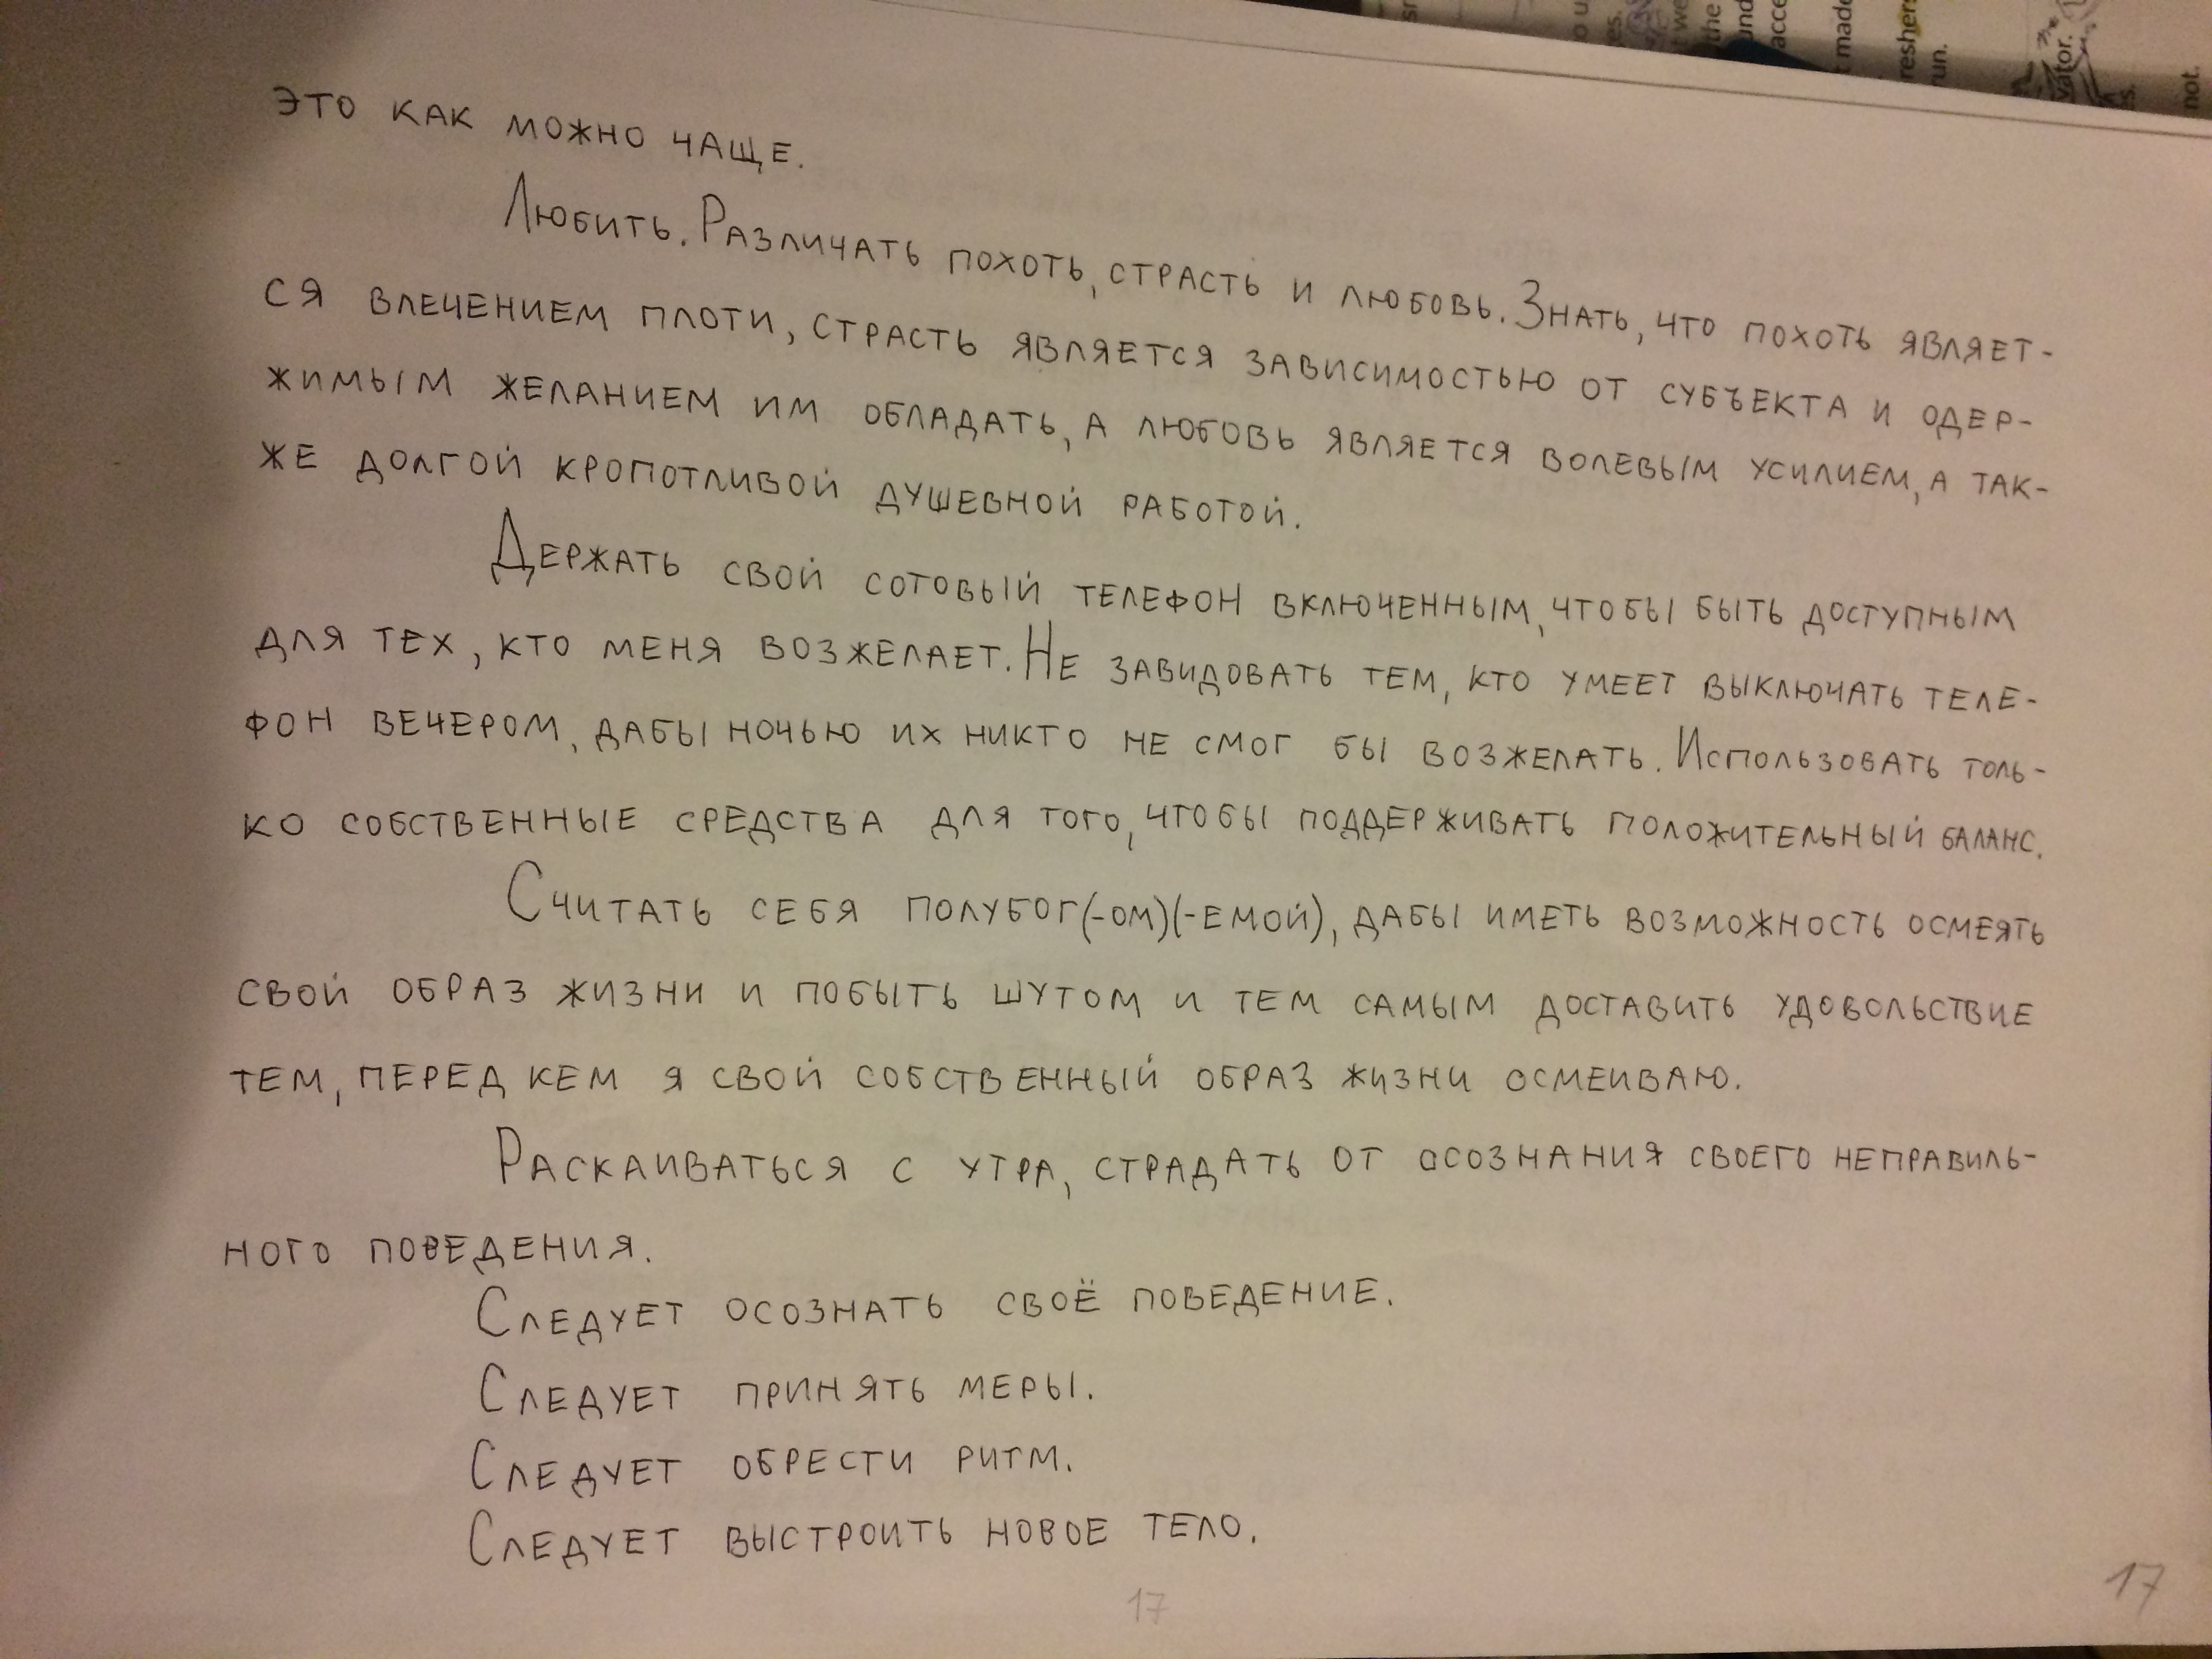 это как можно чаще.
Любить. Различать похоть, страсть и любовь. Знать, что похоть являет-
ся влечением плоти, страсть является зависимостью от субъекта и одер-
жимым желанием им обладать, а любовь является волевым усилием, а так-
же долгой кропотливой душевной работой.
Держать свой сотовый телефон включенным, чтобы быть доступным
для тех, кто меня возжелает. Не завидовать тем, кто умеет выключать теле-
фон вечером, дабы ночью их никто не смог бы возжелать. Использовать толь-
ко собственные средства для того, чтобы поддерживать положительный баланс.
Считать себя полубог(-ом)(-емой), дабы иметь возможность осмеять
свой образ жизни и побыть шутом и тем самым доставить удовольствие
тем, перед кем я свой собственный образ жизни осмеиваю.
Раскаиваться с утра, страдать от осознания своего неправиль-
ного поведения.
Следует осознать своё поведение.
Следует принять меры.
Следует обрести ритм.
Следует выстроить новое тело.
17
17
made
reshers
run.
vator.
not.
the
und
acce